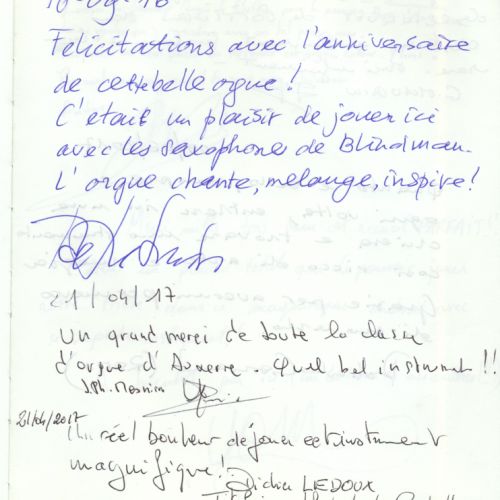 Felicitations avec l'anniversaire
de cette belle orgue!
C'était un plaisir de jouer ici
avec les saxophones de Blindman.
L'orgue chante, melange, inspire!
21/04/17
Un grand merci de toute la classe
d'orgue d'Auxerre. Quel bel instrument !!
J.Ph. Mesnier
21/04/2017
Un réel bonheur de jouer cet instrument
magnifique!
Didier LEDOUX